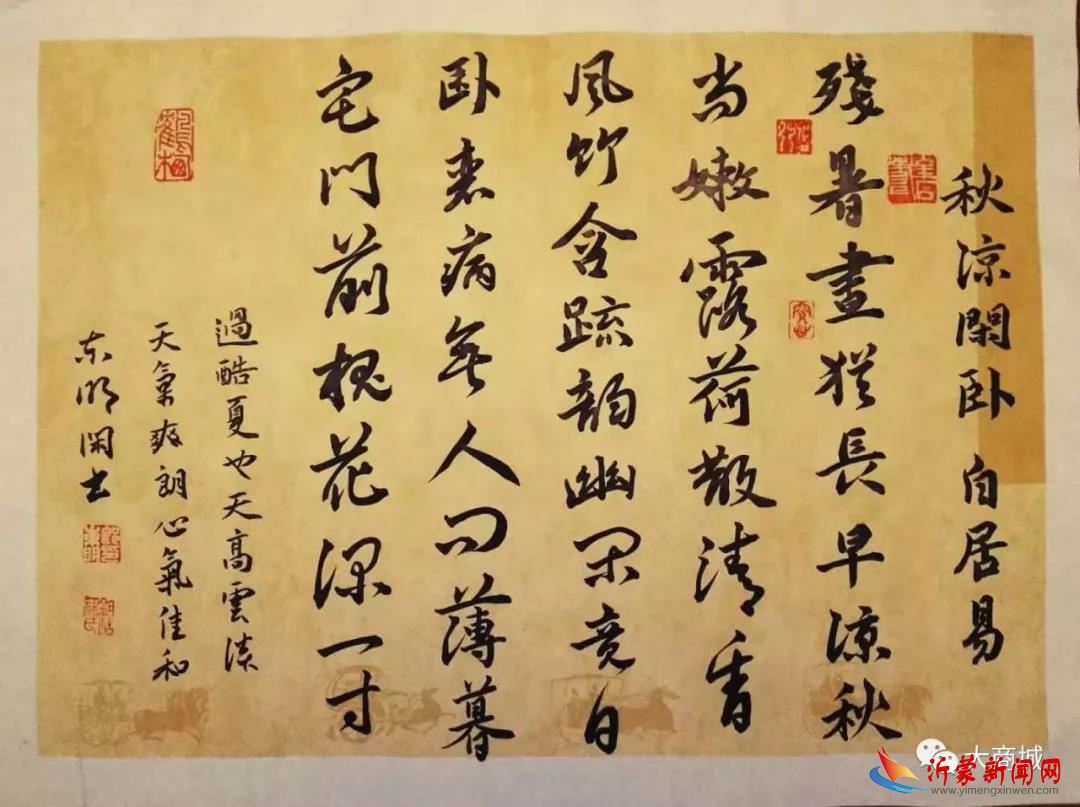 秋涼閑卧 白居易
殘暑晝猶長早涼秋
尚嫩露荷散清香
風竹含疏韵幽閑竟日
卧衰病無人問薄暮
宅門前槐花深一寸
過酷夏也天高雲淡
天氣爽朗心氣佳和
东明闲士
大商城
沂蒙新闻网
www.yimengxinwen.com